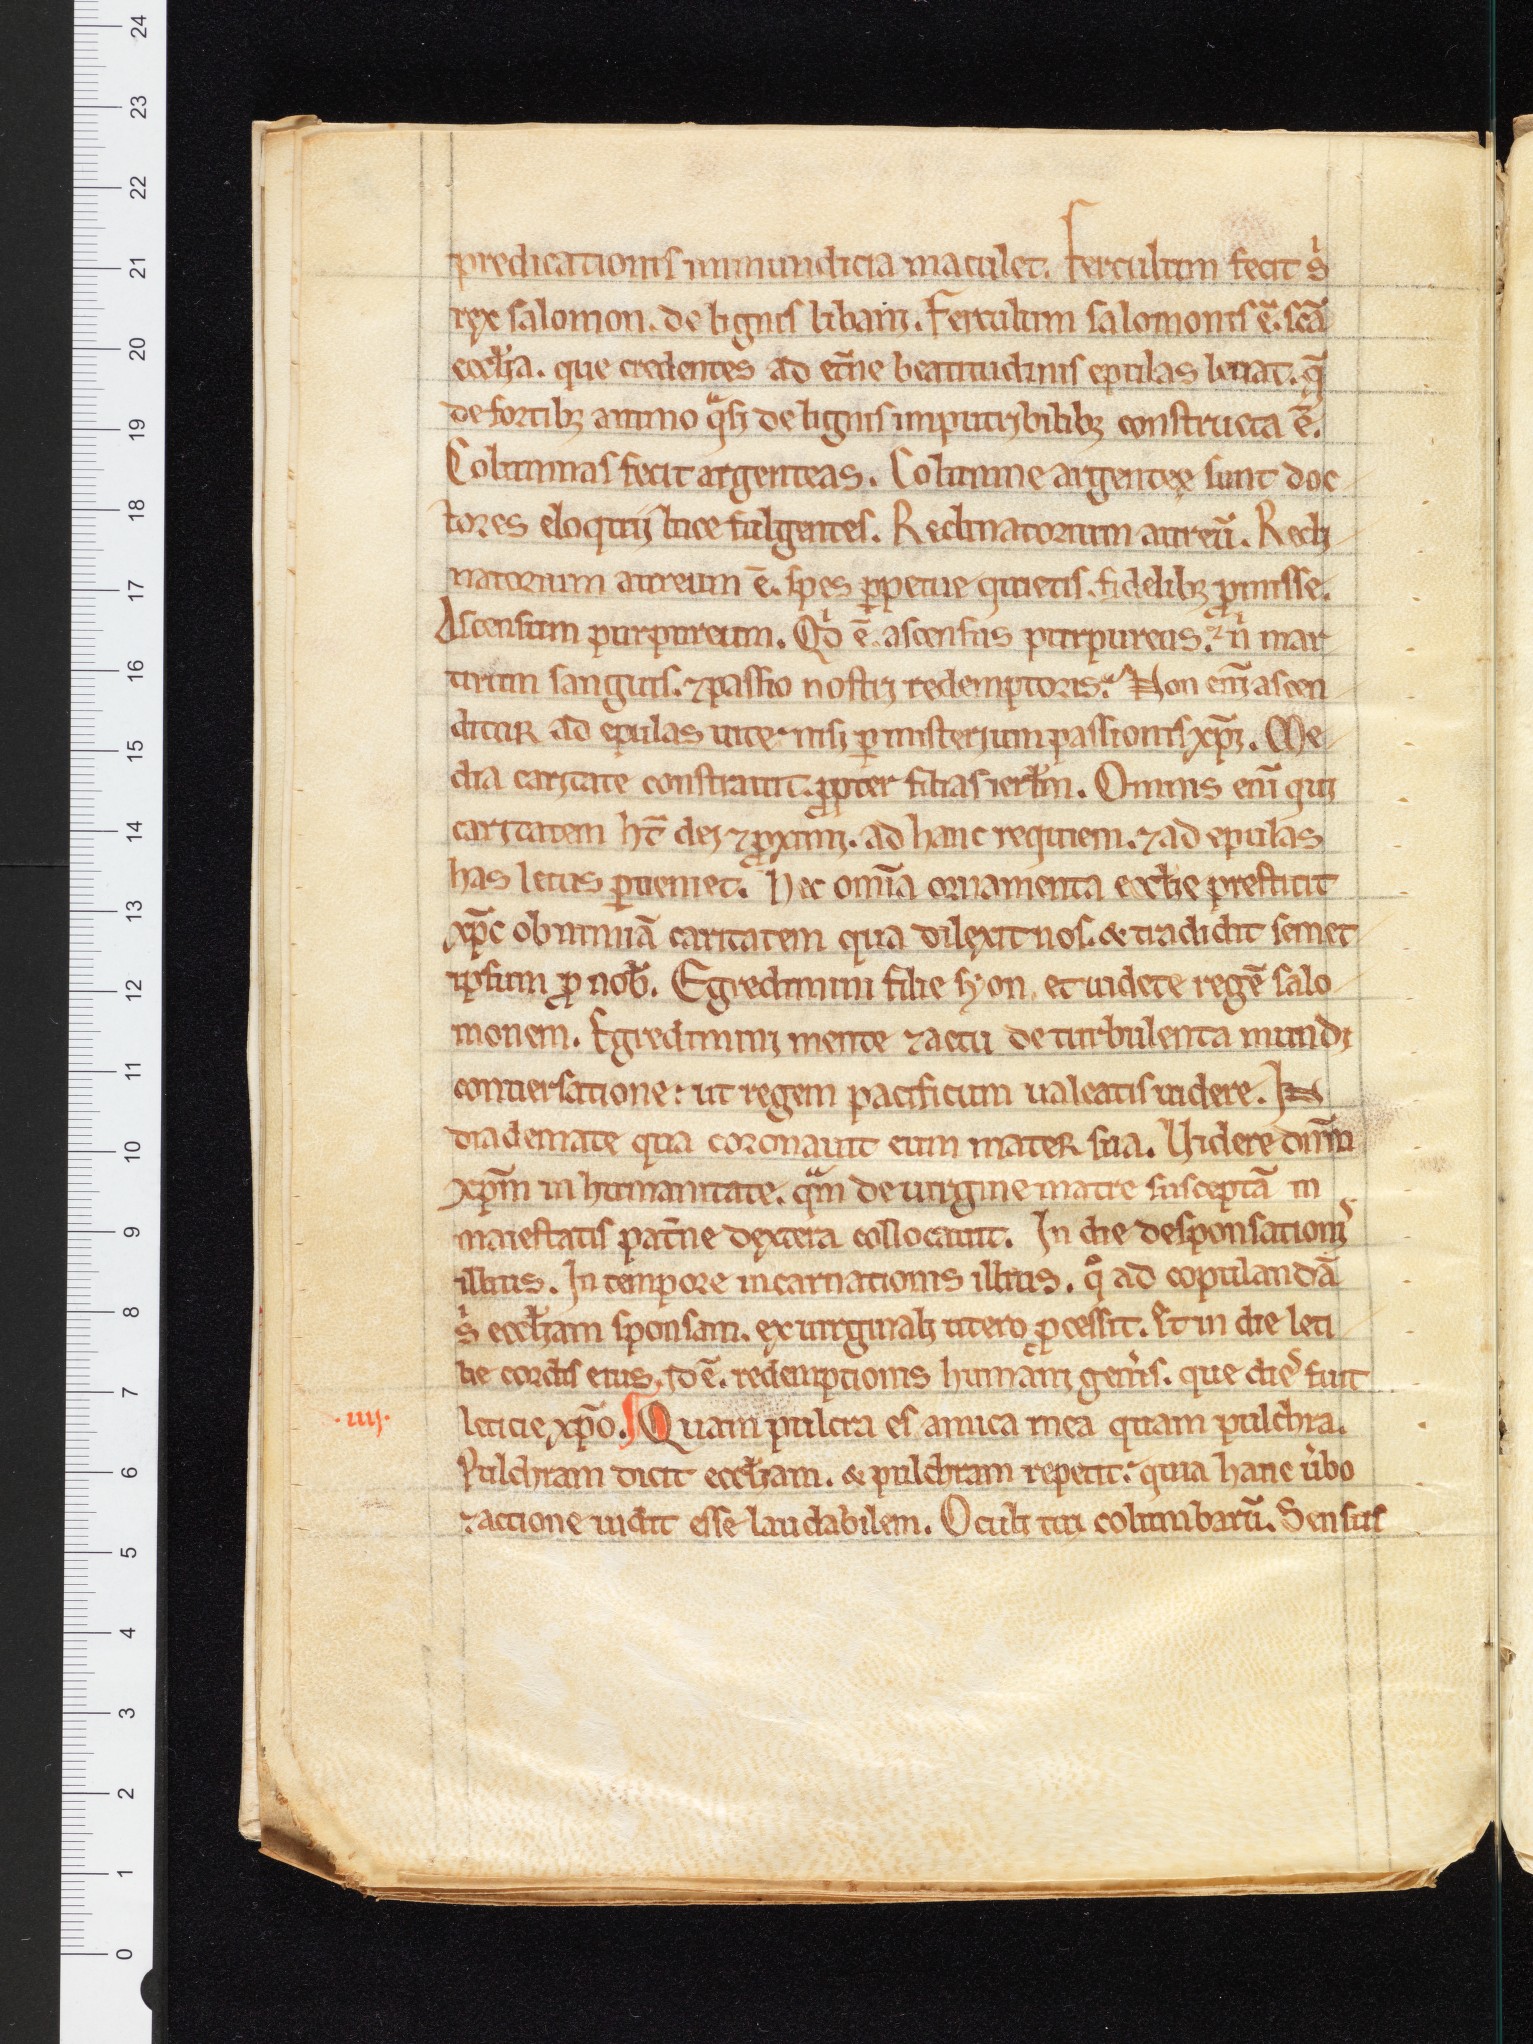 predicationis inmundicia maculet. Ferculum fecit sͥ
rex salomon. de lignis libanı. Ferculum salomonis ē. sc̄a
eccl̄ia. que credentes ad et̄ne beatitudinis epulas leuat. q̄
de fortibꝫ animo qͣsi de lignis inputribilibꝫ constructa ē.
Columnas fecit argenteas. Columne argentee sunt doc
tores eloquij luce fulgentes. Reclinatorium aureū. Recli
natorium aureum ē. spes ꝑpetue quietis. fidelibꝫ ꝓmisse.
Ascensum purpureum. Qͥd ē ascensus purpureus. nͥ mar
tirum sanguis. ⁊ passio nostri redemptoris. Non eni᷈ ascen
ditur ad epulas uite. nisi ꝑ misterium passionis xp̄i. Me
dia caritate constrauit. ꝓpter filias ierl̄m. Omnis eni᷈ qui
caritatem ht̄ dei ⁊ ꝓximi. ad hanc requiem. ⁊ ad epulas
has letus ꝑueniet. Hec omīa ornamenta eccl̄ie prestitit
xp̄c ob nimiā caritatem qua dilexit nos. & tradidit semet
ipsum ꝓ nob̄. Egredimini filie syon et uidete regē salo
monem. Egredimini mente ⁊ actu de turbulenta mundi
conuersatione: ut regem pacificum ualeatis uidere. In
diademate qua coronauit eum mater sua. Uidere dn̄m
xp̄m in humanitate. qͣm de uirgine matre susceptā in
maiestatis pat̄ne dextera collocauit. In die desponsationis
illius. In tempore incarnationis illius. qͦ ad copulandā
sͥ eccl̄iam sponsam. ex uirginali utero ꝓcessit. Et in die leti
tie cordis eius. id ē. redemptionis humani gen̄is. que dies fuit
.iiij. leticie xp̄o. Quam pulcra es amica mea quam pulchra.
Pulchram dicit eccl̄iam. & pulchram repetit. quia hanc ūbo
⁊ actione uidit esse laudabilem. Oculi tui columbarū. Sensus